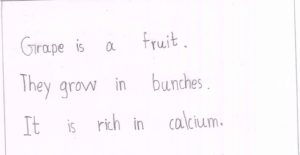 Grape is a fruit.
They grow in bunches.
It is rich in calcium.